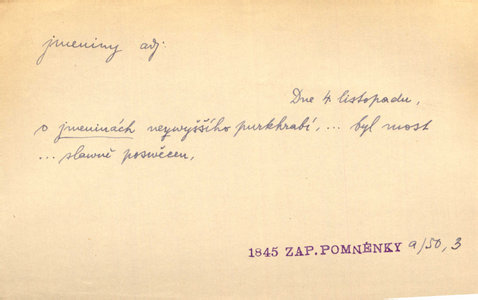 jmeniny adj.
Dne 4. listopadu,
o jmeninách neywyššího purkhrabí, ... byl most
... slawně poswěcen,
1845 ZAP. POMNĚNKY a/50, 3